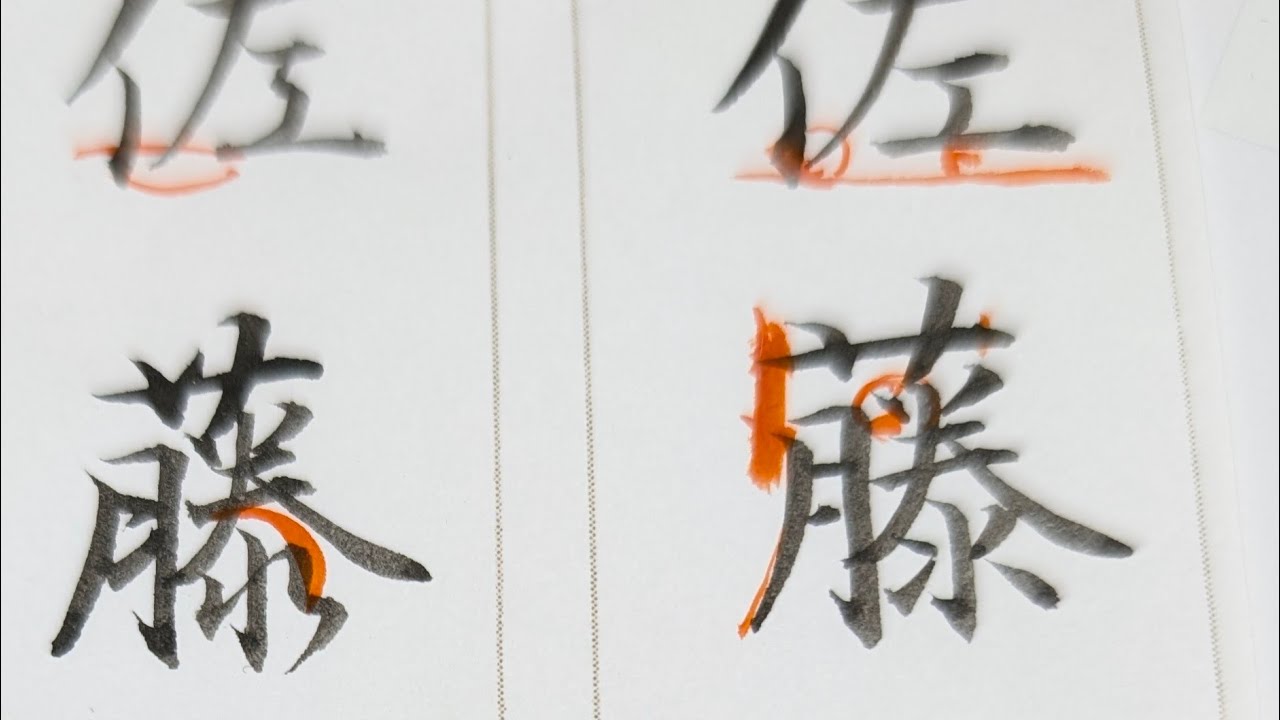 佐藤
佐藤